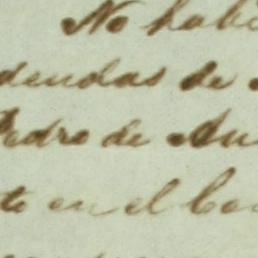 No habi
deudas de
Pedro de Au
to en el Co